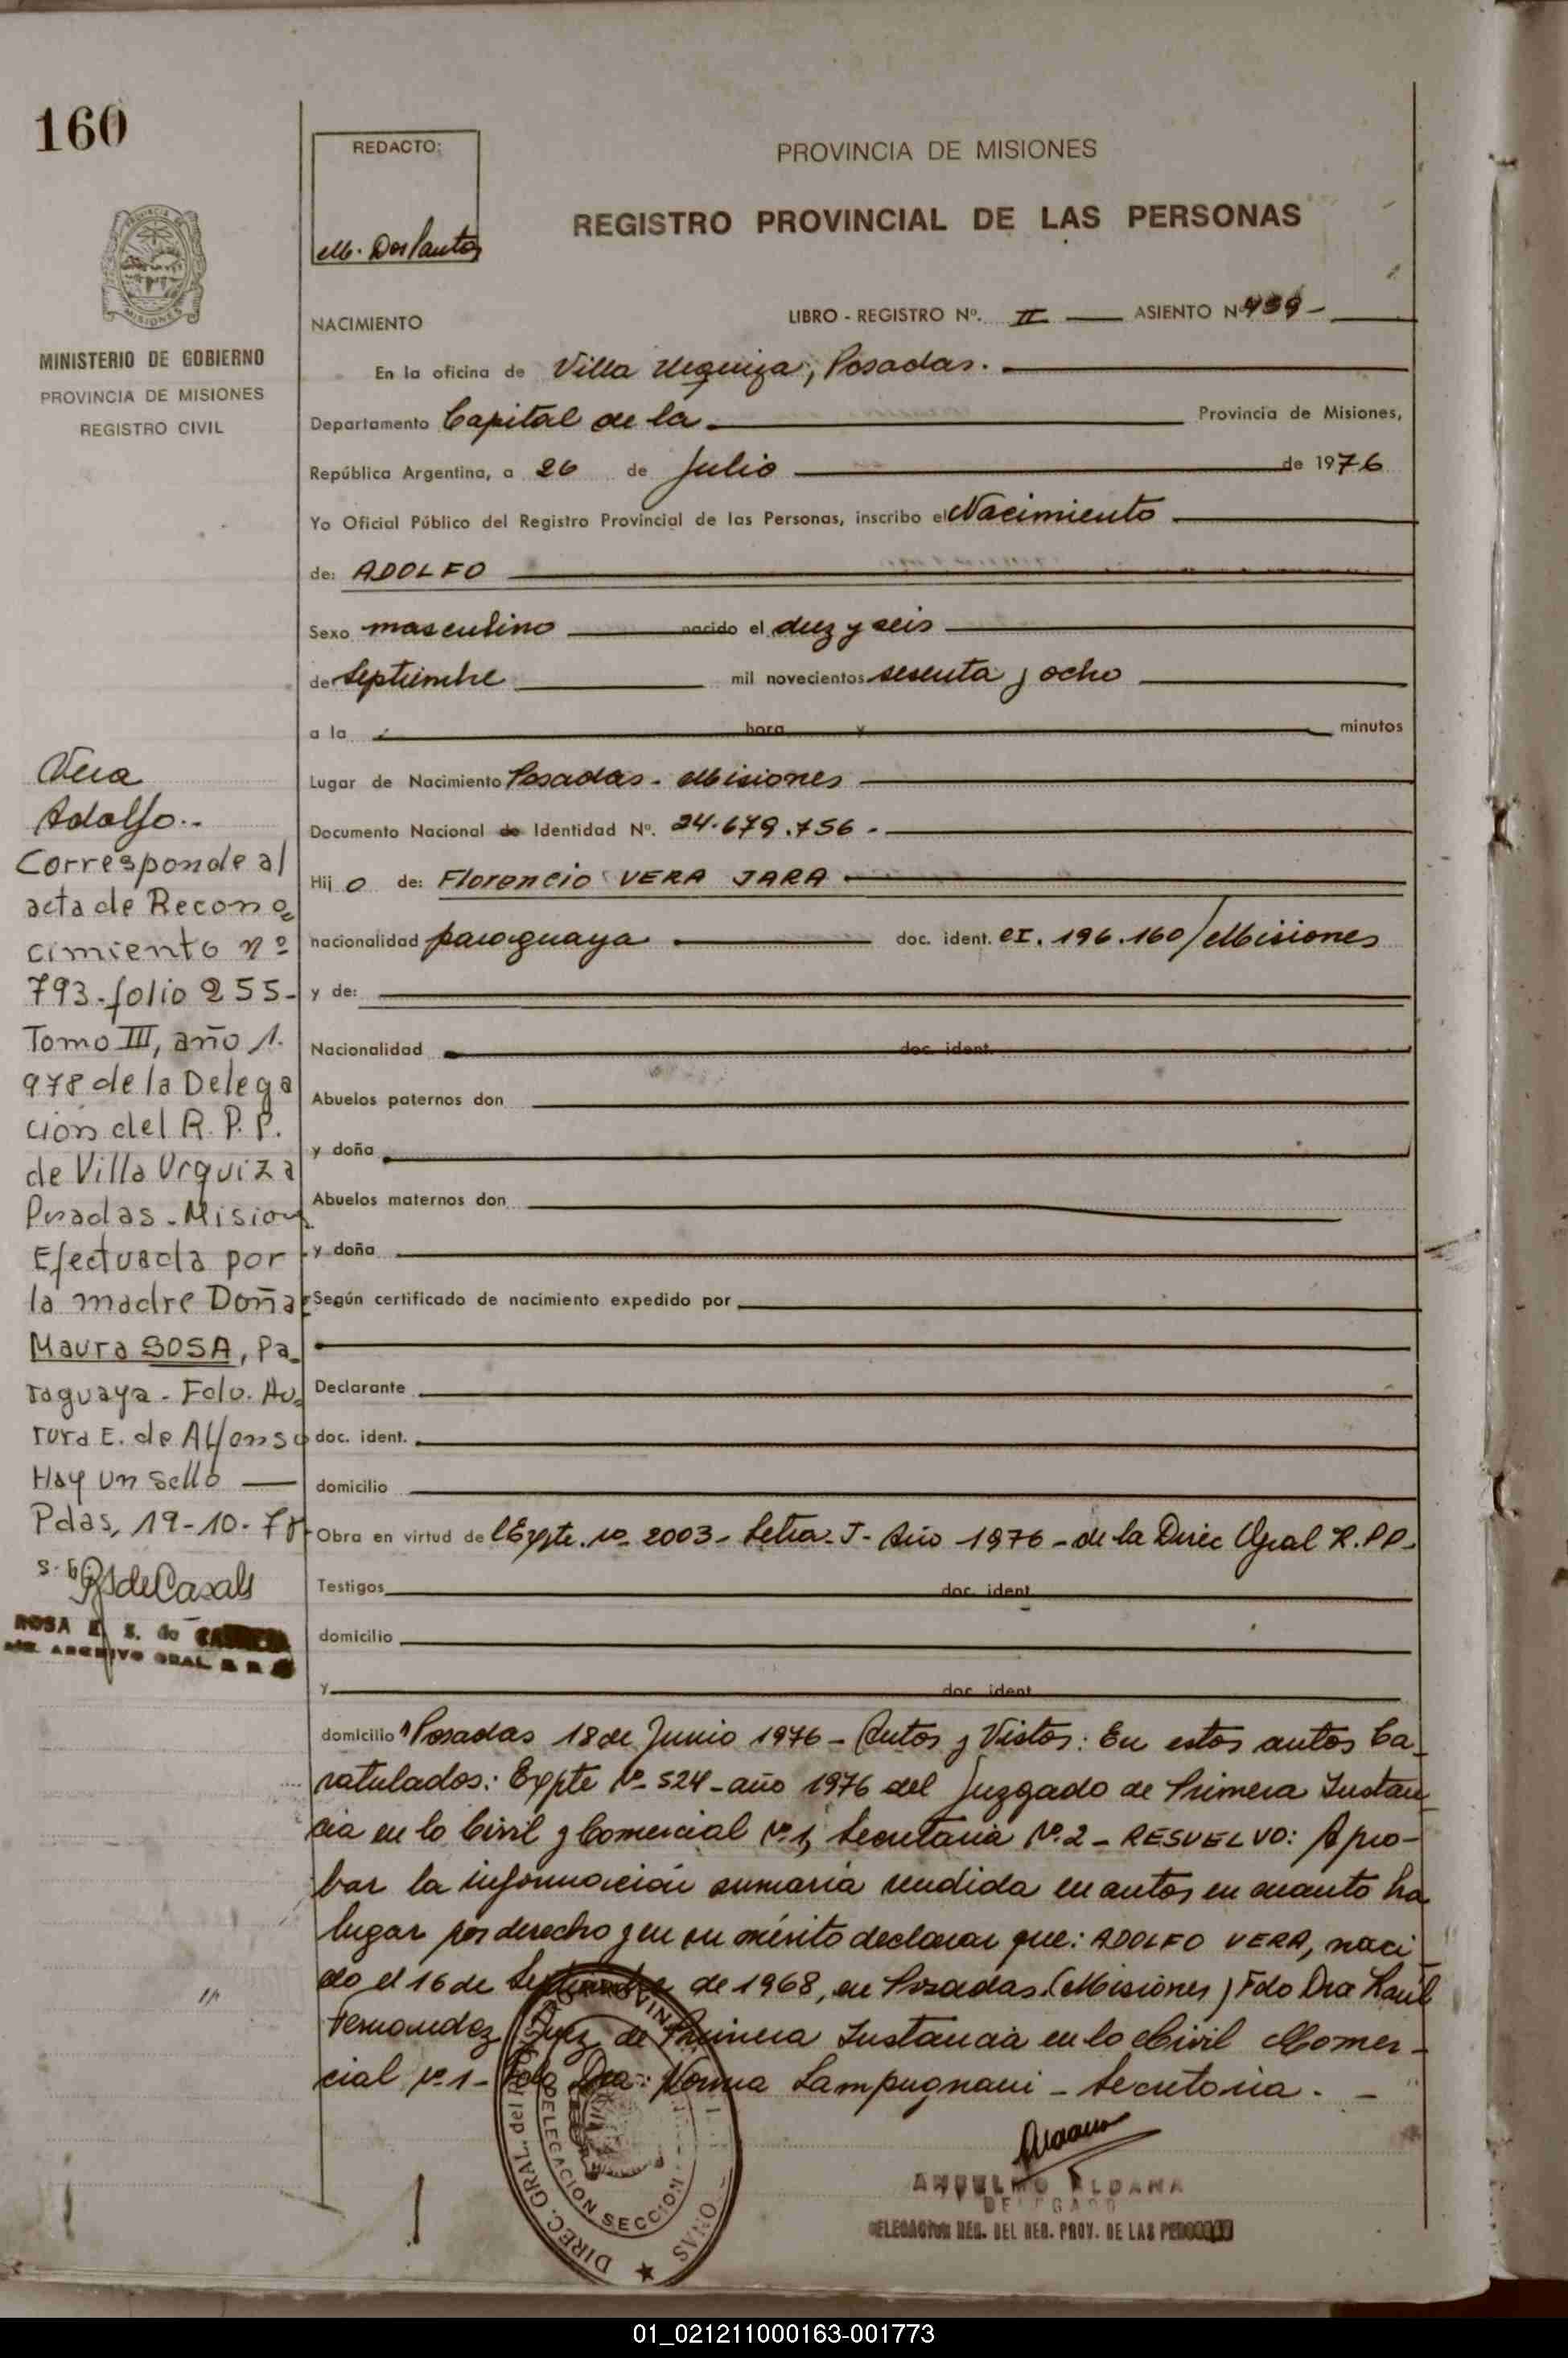 160
REDACTO:
M. Dos Santos
PROVINCIA DE MISIONES
REGISTRO PROVINCIAL DE LAS PERSONAS
MINISTERIO DE GOBIERNO
PROVINCIA DE MISIONES
REGISTRO CIVIL
NACIMIENTO
LIBRO - REGISTRO Nº. II ASIENTO Nº
En la oficina de Villa Urquiza, Posadas.
Departamento Capital de la Provincia de Misiones,
República Argentina, a 26 de Julio de 1976
Yo Oficial Público del Registro Provincial de las Personas, inscribo el Nacimiento
de: ADOLFO
Sexo masculino nacido el diez y seis
de Septiembre mil novecientos sesenta y ocho
a la hora y minutos
Lugar de Nacimiento Posadas - Misiones
Documento Nacional de Identidad Nº. 24.679.756.-
Hij o de: Florencio VERA JARA
nacionalidad paraguaya doc. ident. CI. 196.160/Misiones
y de:
Nacionalidad doc. ident.
Abuelos paternos don
y doña
Abuelos maternos don
y doña
Según certificado de nacimiento expedido por
Declarante
doc. ident.
domicilio
Obra en virtud del Expte. nº 2003 - Letra - J - Año 1976 - de la Direc Gral R.P.P.
Testigos doc. ident.
domicilio
y doc. ident.
domicilio "Posadas 18 de Junio 1976 - Autos y Vistos: En estos autos Ca-
ratulados: Expte Nº 524 - año 1976 del Juzgado de Primera Instan-
cia en lo Civil y Comercial Nº 1, Secretaria Nº 2 - RESUELVO: Apro-
bar la información sumaria rendida en autos en cuanto ha
lugar por derecho y en su mérito declarar que: ADOLFO VERA, naci-
do el 16 de Septiembre de 1968, en Posadas (Misiones) Fdo Dra Raúl
Fernandez Juez de Primera Instancia en lo Civil Comer-
cial nº 1 - Fdo Dra: Norma Lampugnani - Secretaria. - "
Vera
Adolfo.-
Corresponde al
acta de Recono-
cimiento nº
793 - folio 255 -
Tomo III, año 1.
978 de la Delega
ción del R. P. P.
de Villa Urquiza
Posadas - Mision
Efectuada por
la madre Doña
Maura SOSA, Pa-
raguaya - Fdo. Au-
rora E. de Alfonso
Hay un sello
Pdas, 19-10-78
ROSA E. S. de
ARCHIVO GRAL.
DIREC. GRAL. del
DELEGACION SECCION
ALDANA
DELEGADO
DELEGACION REG. DEL REG. PROV. DE LAS
01_021211000163-001773